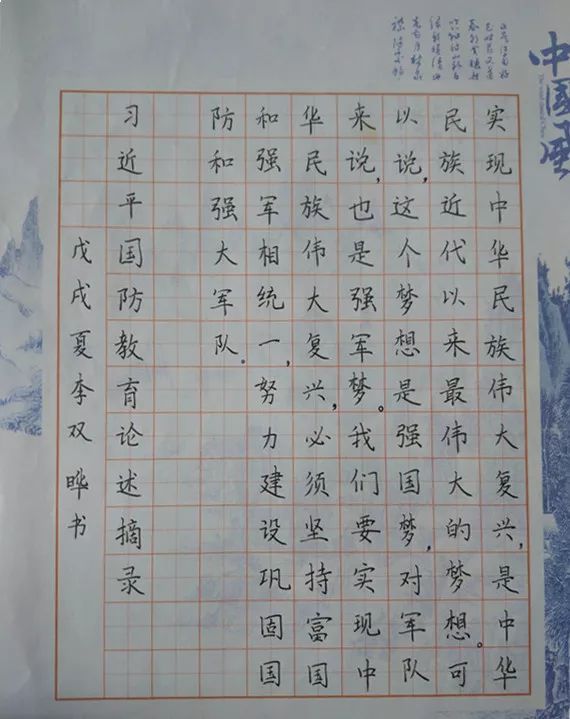 实现中华民族伟大复兴，是中华
民族近代以来最伟大的梦想。可
以说，这个梦想是强国梦，对军队
来说，也是强军梦。我们要实现中
华民族伟大复兴，必须坚持富国
和强军相统一，努力建设巩固国
防和强大军队。
习近平国防教育论述摘录
戊戌夏李双晔书
中国风